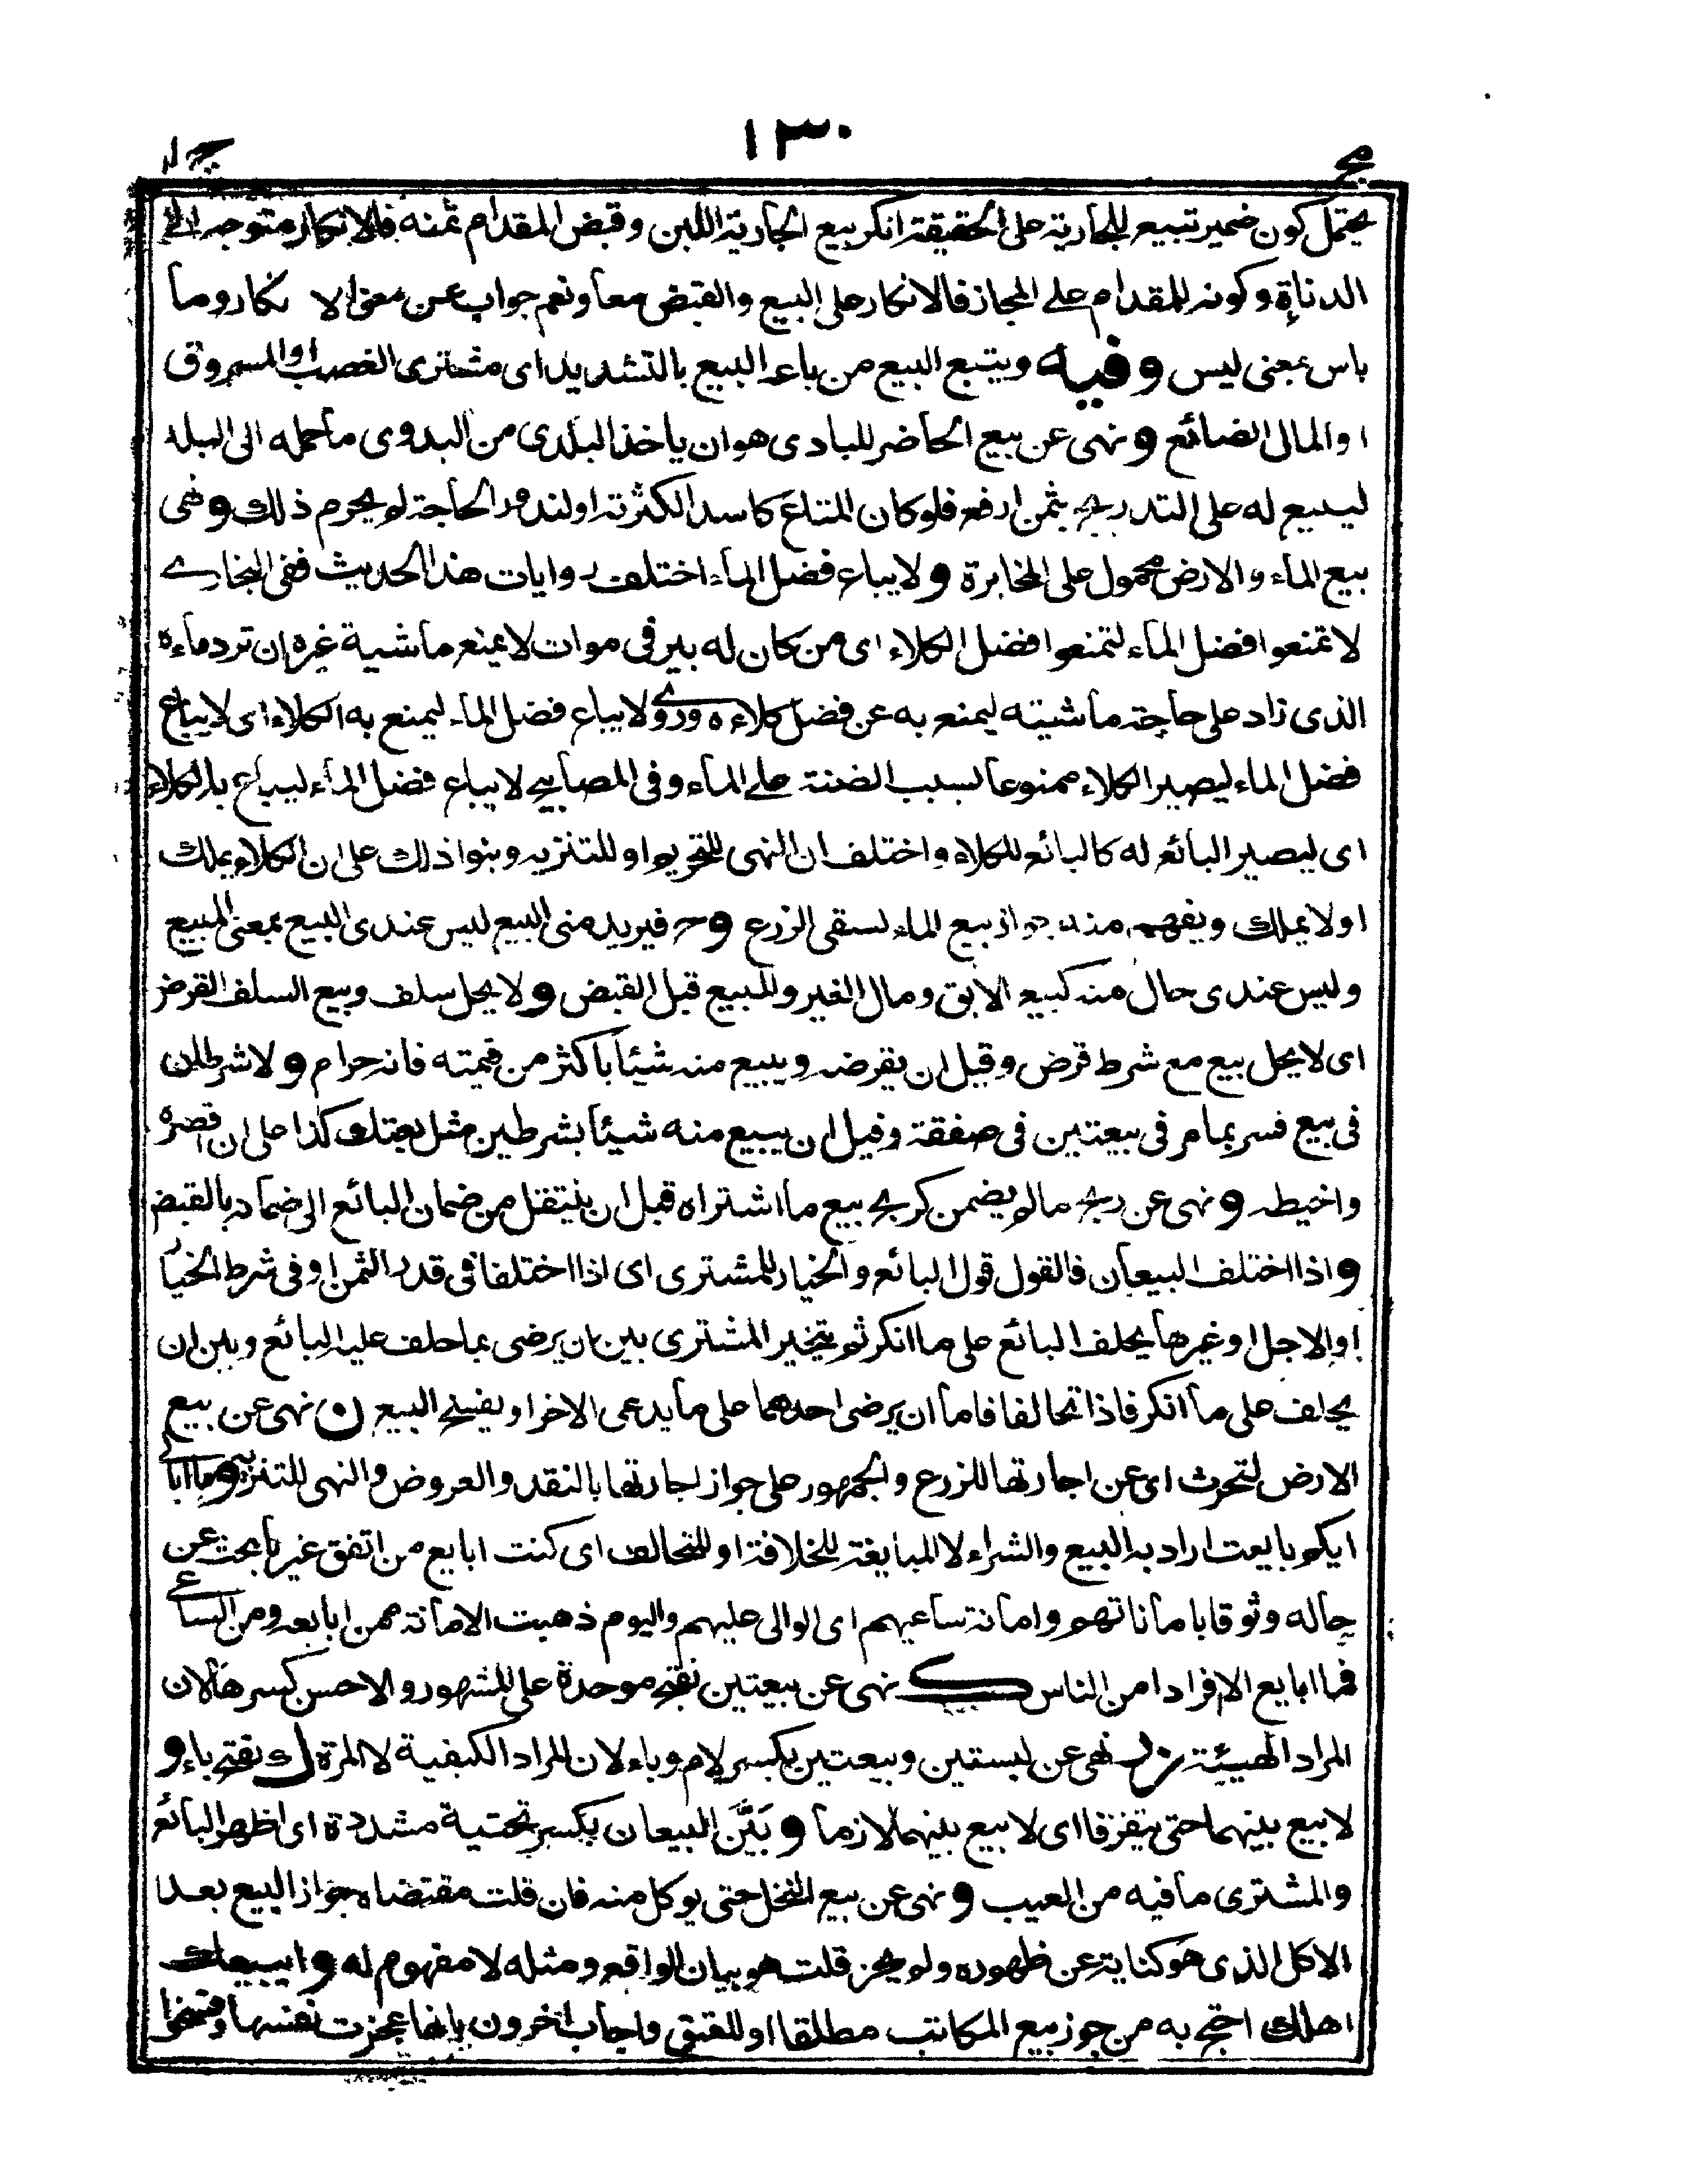 ١٣٠
يحتمل كون ضمير تبيع للجارية على الحقيقة انكر بيع الجارية اللبن وقبض المقدام ثمنه فالانكار متوجه الى
الدناءة وكونه للمقدام على المجاز فالانكار على البيع والقبض معا ونعم جواب عن معنى الا نكار وما
باس بمعنى ليس وفيه ويتبع البيع من باعه البيع بالتشديد اى مشترى الغصب او المسروق
او المال الضائع ونهى عن بيع الحاضر للبادى هو ان ياخذ البلدى من البدوى ما حمله الى البلد
ليبيع له على التدريج بثمن ارفع فلو كان المتاع كاسدا لكثرته او لندور الحاجة لم يحرم ذلك ونهى
بيع الماء والارض محمول على المخابرة ولا يباع فضل الماء اختلف روايات هذا الحديث ففى البخارى
لا تمنعوا فضل الماء لتمنعوا فضل الكلاء اى من كان له بير فى موات لا يمنع ماشية غيره ان ترد ماءه
الذى زاد على حاجة ماشيته ليمنع به عن فضل كلاءه وروى لا يباع فضل الماء ليمنع به الكلاء اى لا يباع
فضل الماء ليصير الكلاء ممنوعا بسبب الضنة على الماء وفى المصابيح لا يباع فضل الماء ليباع به الكلاء
اى ليصير البائع له كالبائع للكلاء واختلف ان النهى للتحريم او للتنزيه وبنوا ذلك على ان الكلاء يملك
او لا يملك ويفهم منه جواز بيع الماء لسقى الزرع وح فيريد منى البيع ليس عندى البيع بمعنى المبيع
وليس عندى حال منه كبيع الابق ومال الغير والمبيع قبل القبض ولا يحل سلف وبيع السلف القرض
اى لا يحل بيع مع شرط قرض وقيل ان يقرضه ويبيع منه شيئا باكثر من قيمته فانه حرام ولا شرطان
فى بيع فسر بما مر فى بيعتين فى صفقة وقيل ان يبيع منه شيئا بشرطين مثل بعتك كذا على ان اقصره
واخيطه ونهى عن ربح مالم يضمن كربح بيع ما اشتراه قبل ان ينتقل من ضمان البائع الى ضمانه بالقبض
واذا اختلف البيعان فالقول قول البائع والخيار للمشترى اى اذا اختلفا فى قدر الثمن او فى شرط الخيا
او الاجل او غيرها يحلف البائع على ما انكر ثم يتخير المشترى بين ان يرضى بما حلف عليه البائع وبين ان
يحلف على ما انكر فاذا تحالفا فاما ان يرضى احدهما على ما يدعى الاخر او يفسخ البيع ن نهى عن بيع
الارض لتحرث اى عن اجارتها للزرع والجمهور على جواز اجارتها بالنقد والعروض والنهى للتنزيه وما ابالى
ايكم بايعت اراد به البيع والشراء لا المبايعة للخلافة او للتحالف اى كنت ابايع من اتفق غير باحث عن
حاله وثوقا باماناتهم وامانة ساعيهم اى الوالى عليهم واليوم ذهبت الامانة ممن ابايعه ومن
فما ابايع الا فرادا من الناس نهى عن بيعتين بفتح موحدة على المشهور والاحسن كسرها لان
المراد الهيئة زر نهى عن لبستين وبيعتين بكسر لام وباء لان المراد الكيفية لا المرة ك بفتح باء و
لا بيع بينهما حتى يتفرقا اى لا بيع بينهما لازما وبَيَّن البيعان بكسر تحتية مشددة اى اظهر البائع
والمشترى ما فيه من العيب ونهى عن بيع النخل حتى يوكل منه فان قلت مقتضاه جواز البيع بعد
الاكل الذى هو كناية عن ظهوره ولم يجز قلت هو بيان الواقع ومثله لا مفهوم له وايبيعك
اهلك احتج به من جوز بيع المكاتب مطلقا او للعتق واجاب اخرون بانها عجزت نفسها وفسخوا